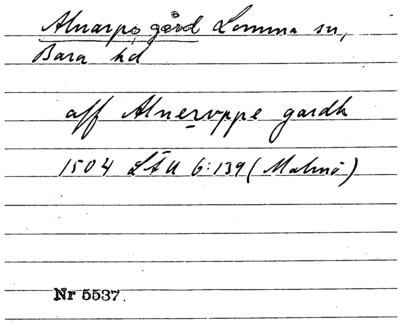 Alnarps gård Lomma sn,
Bara hd
aff Alneruppe gardh
1504 LÄU 6:139 (Malmö)
Nr 5537.